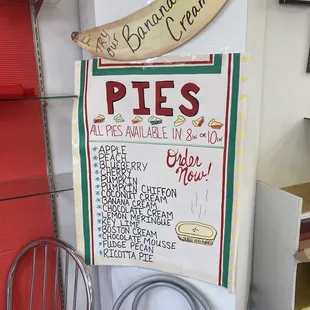 TRY
our
Banana
Cream
PIES
ALL PIES AVAILABLE IN 8IN OR 10IN
Order
Now!
*APPLE
*PEACH
*BLUEBERRY
*CHERRY
*PUMPKIN
*PUMPKIN CHIFFON
*COCONUT CREAM
*BANANA CREAM
*CHOCOLATE CREAM
*LEMON MERINGUE
*KEY LIME
*BOSTON CREAM
*CHOCOLATE MOUSSE
*FUDGE PECAN
*RICOTTA PIE